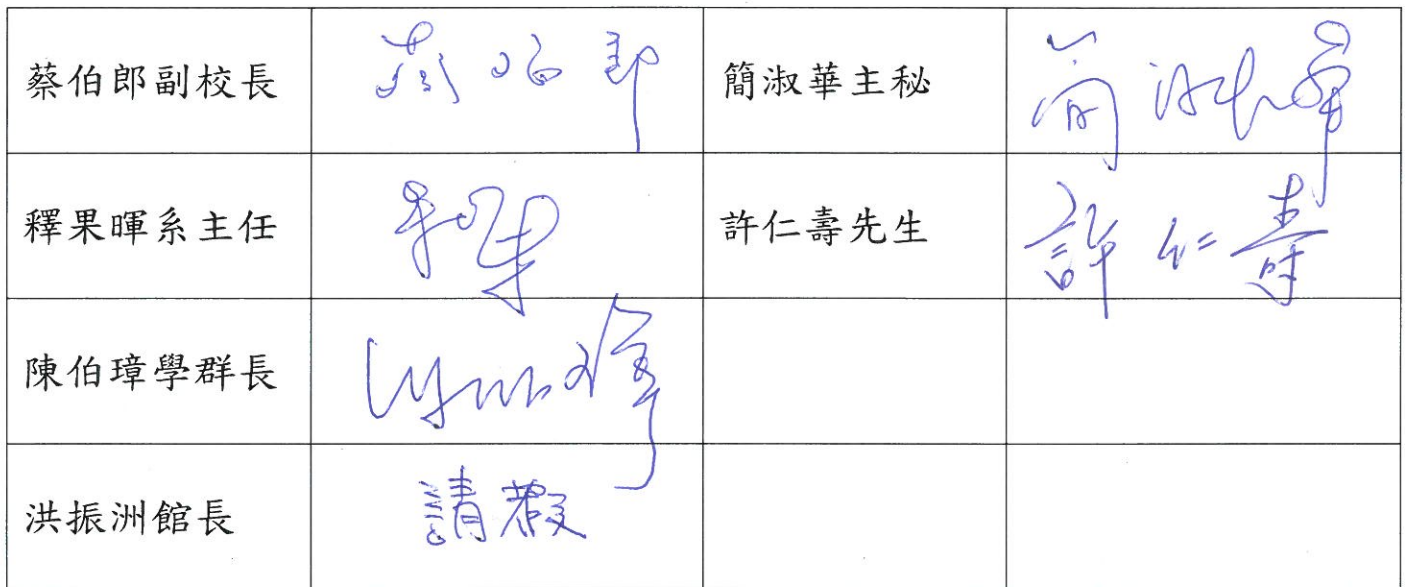 蔡伯郎副校長 蔡伯郎 簡淑華主秘 簡淑華
釋果暉系主任 許仁壽先生 許仁壽
陳伯璋學群長
洪振洲館長 請假